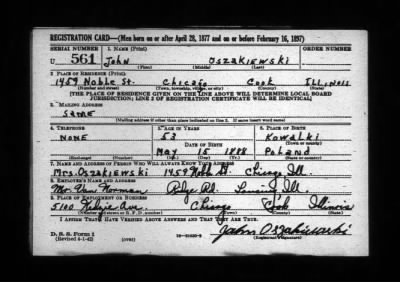 REGISTRATION CARD—(Men born on or after April 28, 1877 and on or before February 16, 1897)
SERIAL NUMBER 1. NAME (Print)
U 561 John Oszakiewski
(First) (Middle) (Last)
2. PLACE OF RESIDENCE (Print)
1459 Noble St. Chicago Cook Illinois
(Number and street) (Town, township, village, or city) (County) (State)
[THE PLACE OF RESIDENCE GIVEN ON THE LINE ABOVE WILL DETERMINE LOCAL BOARD
JURISDICTION; LINE 2 OF REGISTRATION CERTIFICATE WILL BE IDENTICAL]
3. MAILING ADDRESS
Same
[Mailing address if other than place indicated on line 2. If same insert word same]
4. TELEPHONE 5. AGE IN YEARS 6. PLACE OF BIRTH
None 53 Kowalki
DATE OF BIRTH (Town or county)
May 15 1888 Poland
(Exchange) (Number) (Mo.) (Day) (Yr.) (State or country)
7. NAME AND ADDRESS OF PERSON WHO WILL ALWAYS KNOW YOUR ADDRESS
Mrs. Oszakiewski 1459 Noble St. Chicago Ill.
8. EMPLOYER'S NAME AND ADDRESS
Mr. Van Norman Ridge Rd. Ill.
9. PLACE OF EMPLOYMENT OR BUSINESS
5100 Ave. Chicago Cook Illinois
(Number and street or R. F. D. number) (Town) (County) (State)
I AFFIRM THAT I HAVE VERIFIED ABOVE ANSWERS AND THAT THEY ARE TRUE.
D. S. S. Form 1
(Revised 4-1-42) (over) John Oszakiewski
(Registrant's signature)